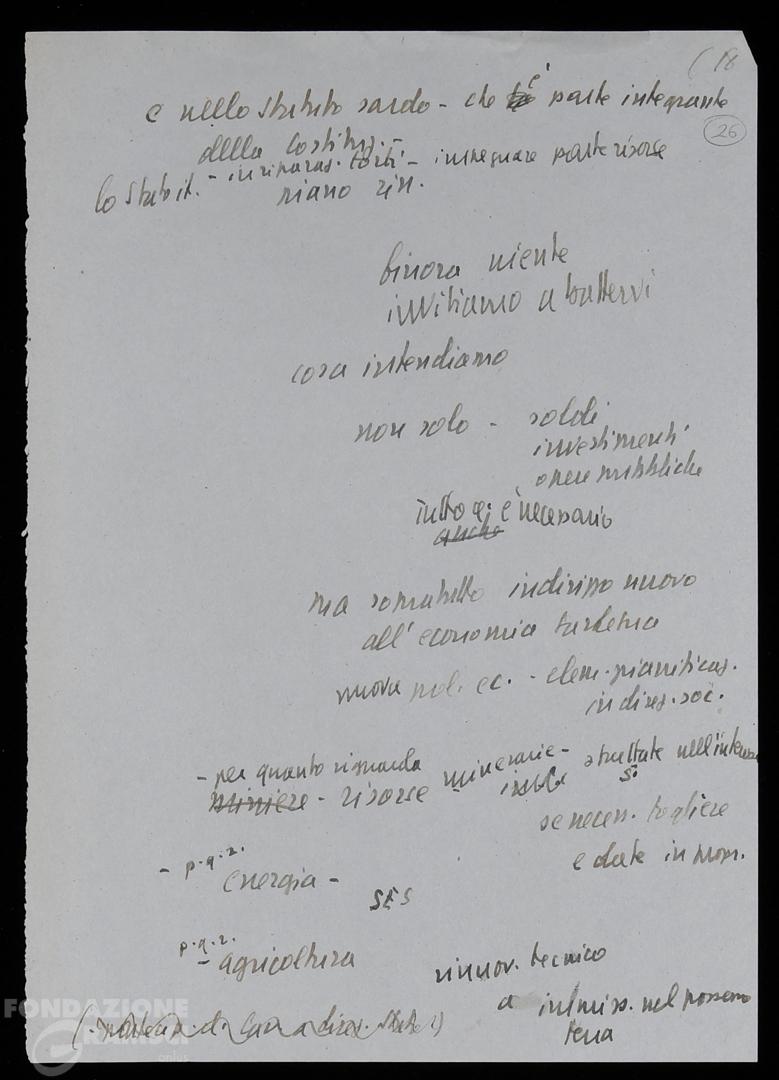 ( 18
26
e nello Statuto sardo - che è parte integrante
della Costituz. -
lo Stato it. - in riparaz. torti - impegnare parte risorse
piano rin.
finora niente
invitiamo a battervi
cosa intendiamo
non solo - soldi
investimenti
opere pubbliche
tutto q. è necessario
anche
ma sopratutto indirizzo nuovo
all'economia
nuova pol. ec. - elem. pianificaz.
in direz. soc.
- per quanto riguarda
miniere - risorse minerarie - sfruttate nell'interesse
si
se necess. togliere
e date in
- p.q.r.
energia -
SES
p.q.r.
- agricoltura
rinnov. tecnico
nel possesso
terra
FONDAZIONE
GRAMSCI
onlus